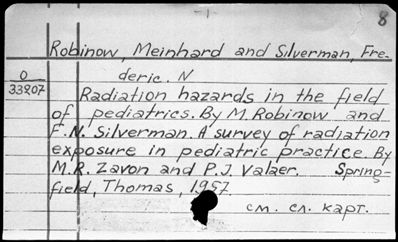 8
Robinow, Meinhard and Silverman, Fre-
deric. N
0
33807
Radiation hazards in the field
of pediatrics. By M. Robinow and
F. N. Silverman. A survey of radiation
exposure in pediatric practice. By
M.R. Zavon and P.J. Valaer. Spring-
field, Thomas, 1957.
см. сл. карт.